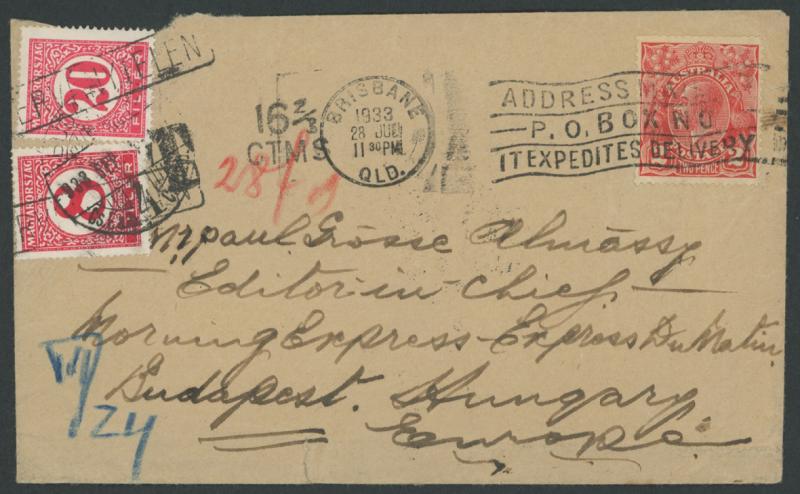 MAGYARORSZÁG
20
FILLÉR
MAGYARORSZÁG
8
T
16 2/3
CTMS
BRISBANE
1933
28 JUE
11 30 PM
QLD.
ADDRESS
P.O. BOX NO
IT EXPEDITES DELIVERY
AUSTRALIA
TWO PENCE
28/
Mr Paul Grosse Almassy
Editor-in-Chief
Morning Express - Express Du Matin
Budapest. Hungary
Europe
24